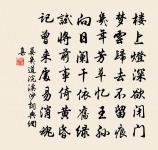 樓上燈深欲閉門
夢雲歸去不留痕
幾年芳草憶王孫
向日闌干依舊綠
試將前事倚黃昏
記曾來處易消魂
晏幾道浣溪沙詞典網
集